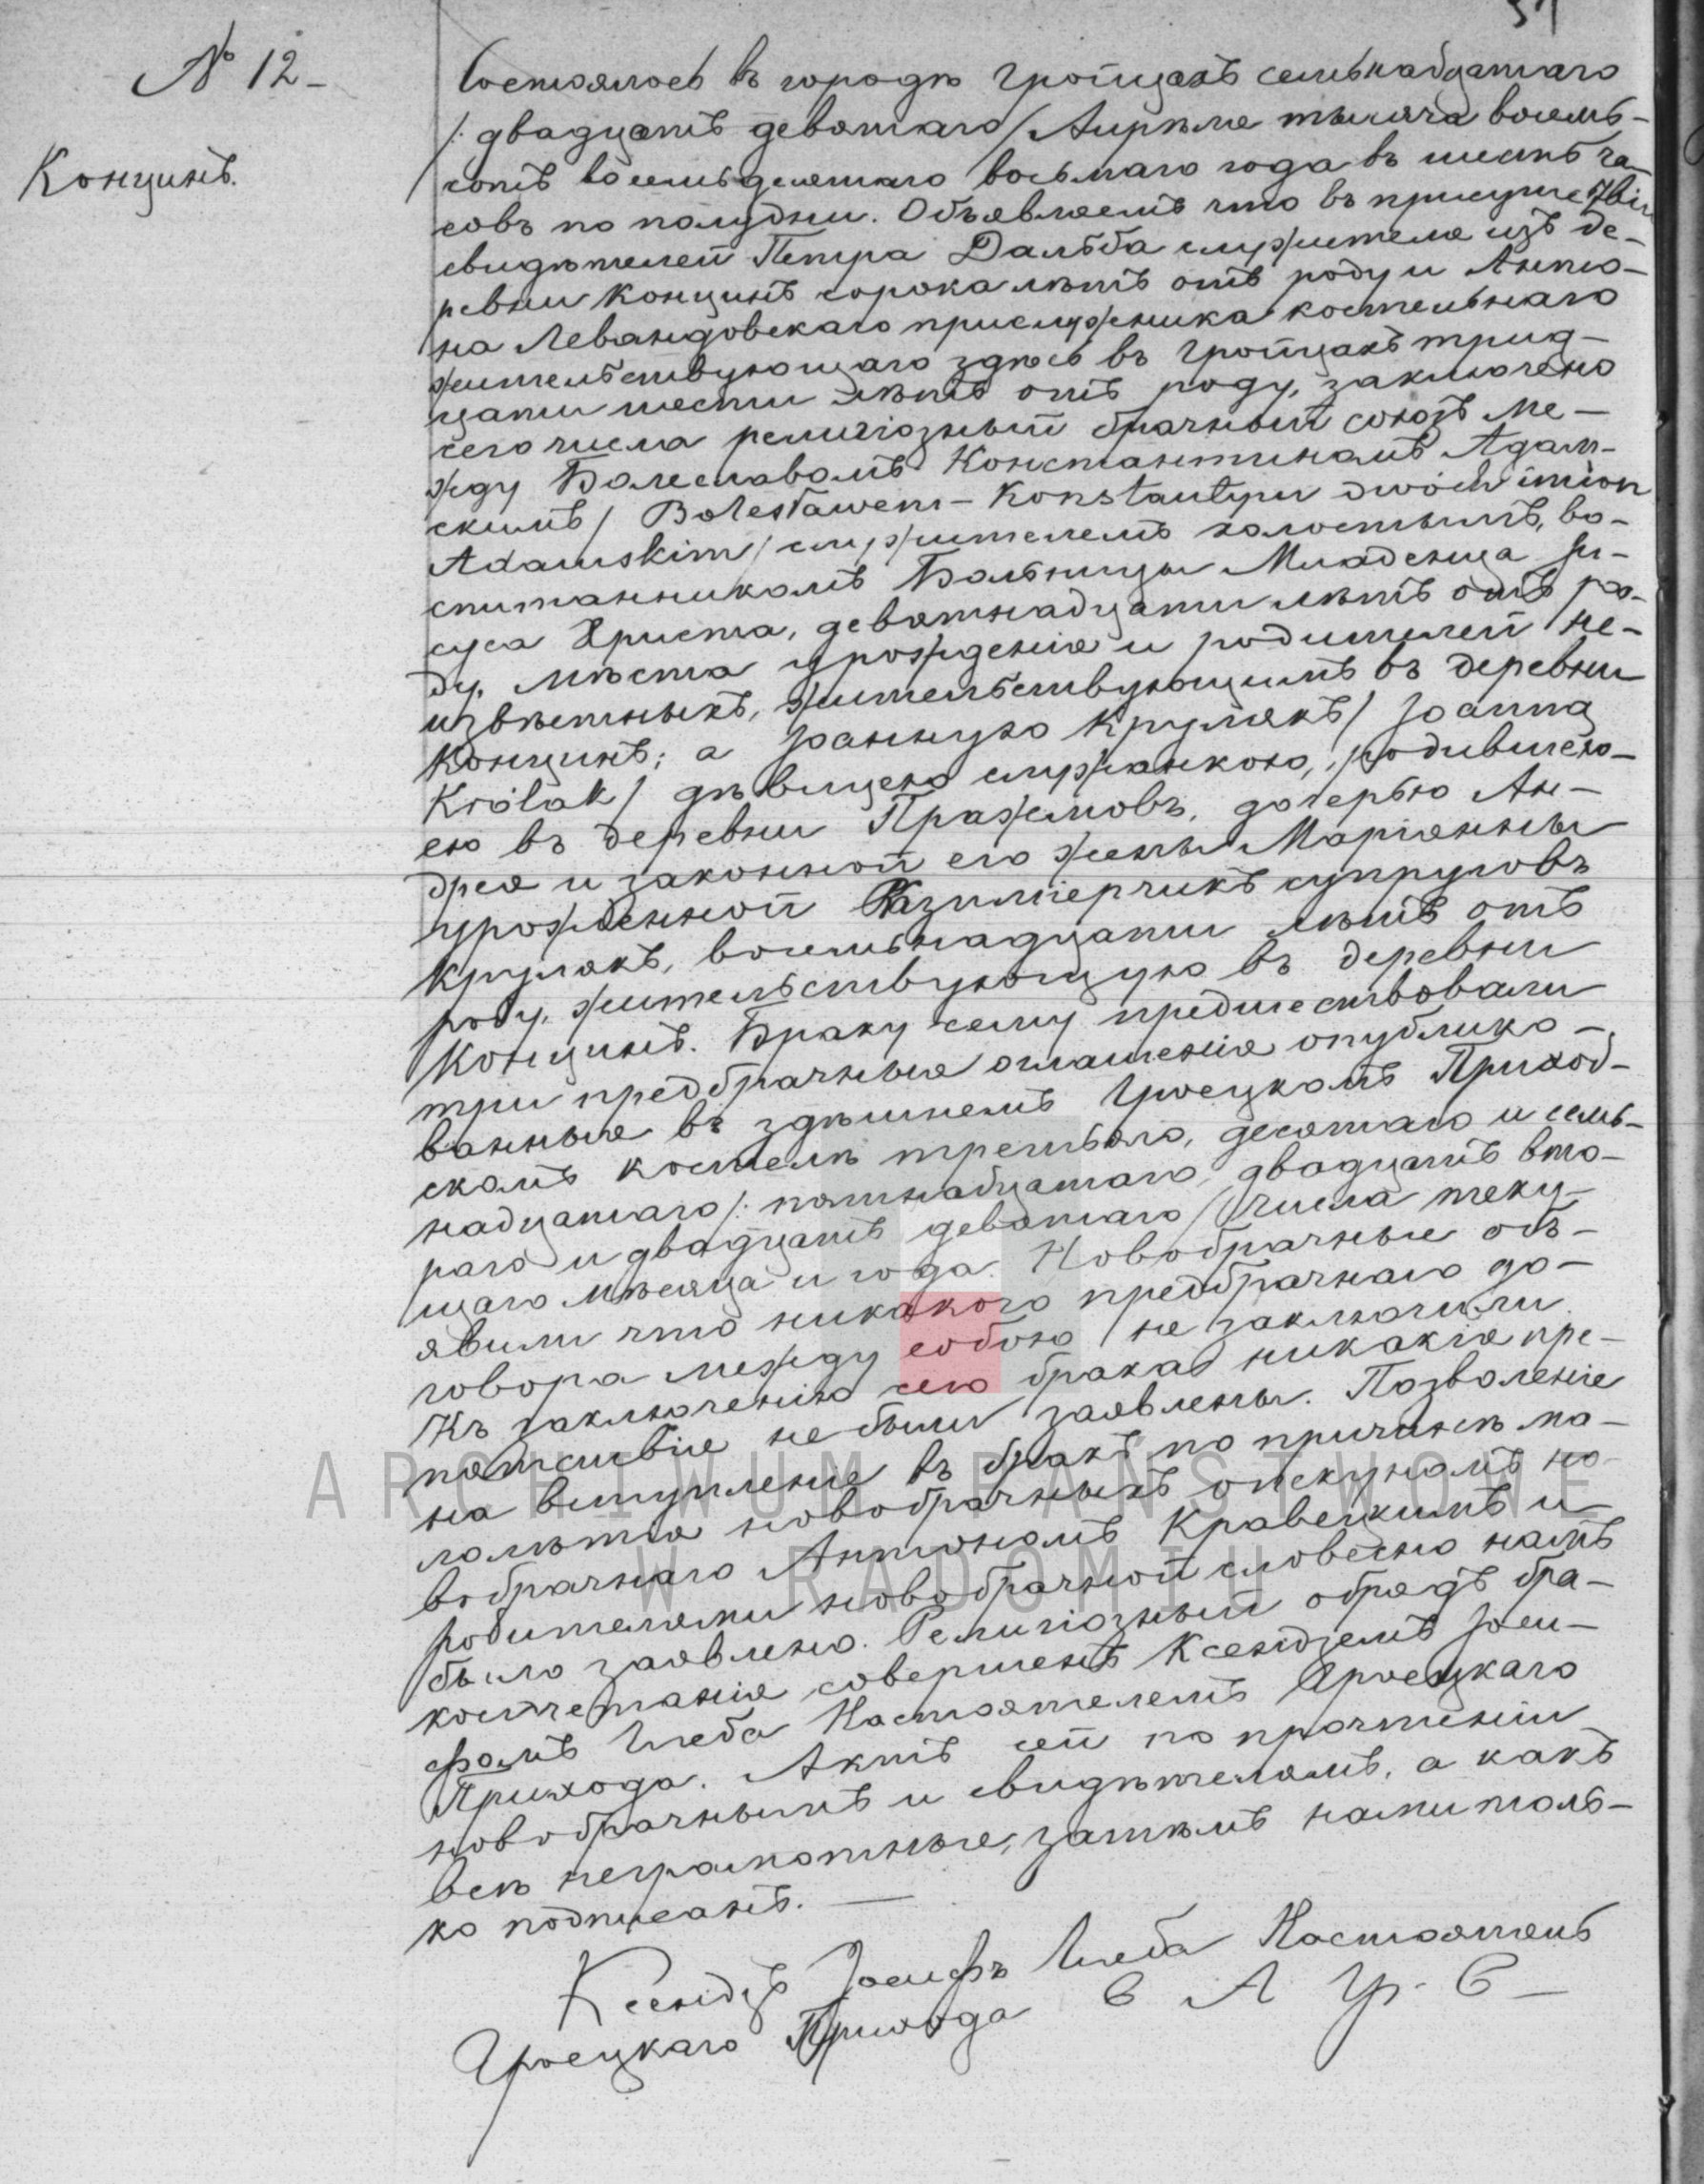 № 12 -
Концинъ.
Состоялось въ городѣ Гройцахъ семьнадцатаго
/: двадцать девятаго / Апрѣля тысяча восемь-
сотъ восемьдесятаго восьмаго года въ шесть ча-
совъ по полудни. Объявляемъ что въ присутствіи
свидѣтелей Петра Дальба служителя изъ де-
ревни Концинъ сорока лѣтъ отъ роду и Анто-
на Левандовскаго прислужника костельнаго
жительствующаго здѣсь въ Гройцахъ трид-
цати шести лѣтъ отъ роду, заключено
сего числа религіозный брачный союзъ ме-
жду Болеславомъ Константиномъ Адам-
скимъ / Bolesławem - Konstantyn dwóch imion
Adamskim / служителемъ холостымъ, во-
спитанникомъ Больницы Младенца Іи-
суса Христа, девятнадцати лѣтъ отъ ро-
ду, мѣста урожденія и родителей не-
извѣстныхъ, жительствующимъ въ деревни
Концинъ; а Іоанную Крулякъ / Joanna
Królak / дѣвицею служанкою, родившею-
ею въ деревни Пражмовъ, дочерью Ан-
дрея и законной его жены Маріанны
урожденной Казимерчикъ супруговъ
Крулякъ, восемьнадцати лѣтъ отъ
роду, жительствующую въ деревни
Концинъ. Браку сему предшествовали
три предбрачныя оглашенія опублико-
ванныя въ здѣшнемъ Гроецкомъ Приход-
скомъ костелѣ третьяго, десятаго и семь-
надцатаго /: пятнадцатаго, двадцать вто-
раго и двадцать девятаго / числа теку-
щаго мѣсяца и года. Новобрачные объ-
явили что никакого предбрачнаго до-
говора между собою не заключили.
Къ заключенію сего брака никакія пре-
пятствіе не были заявлены. Позволеніе
на вступленіе въ бракъ по причинѣ ма-
лолѣтія новобрачныхъ опекуномъ но-
вобрачнаго Антономъ Кравецкимъ и
родителями новобрачной словесно намъ
было заявлено. Религіозный обрядъ бра-
косочетанія совершенъ Ксендземъ Іоси-
фомъ Глеба Настоятелемъ Гроецкаго
Прихода. Актъ сей по прочтеніи
новобрачнымъ и свидѣтелямъ, а какъ
всѣ неграмотные, затѣмъ нами толь-
ко подписанъ. —
Ксендзъ Іосифъ Глеба Настоятель
Гроецкаго Прихода С А Гр. С -
ARCHIWUM PAŃSTWOWE
W RADOMIU